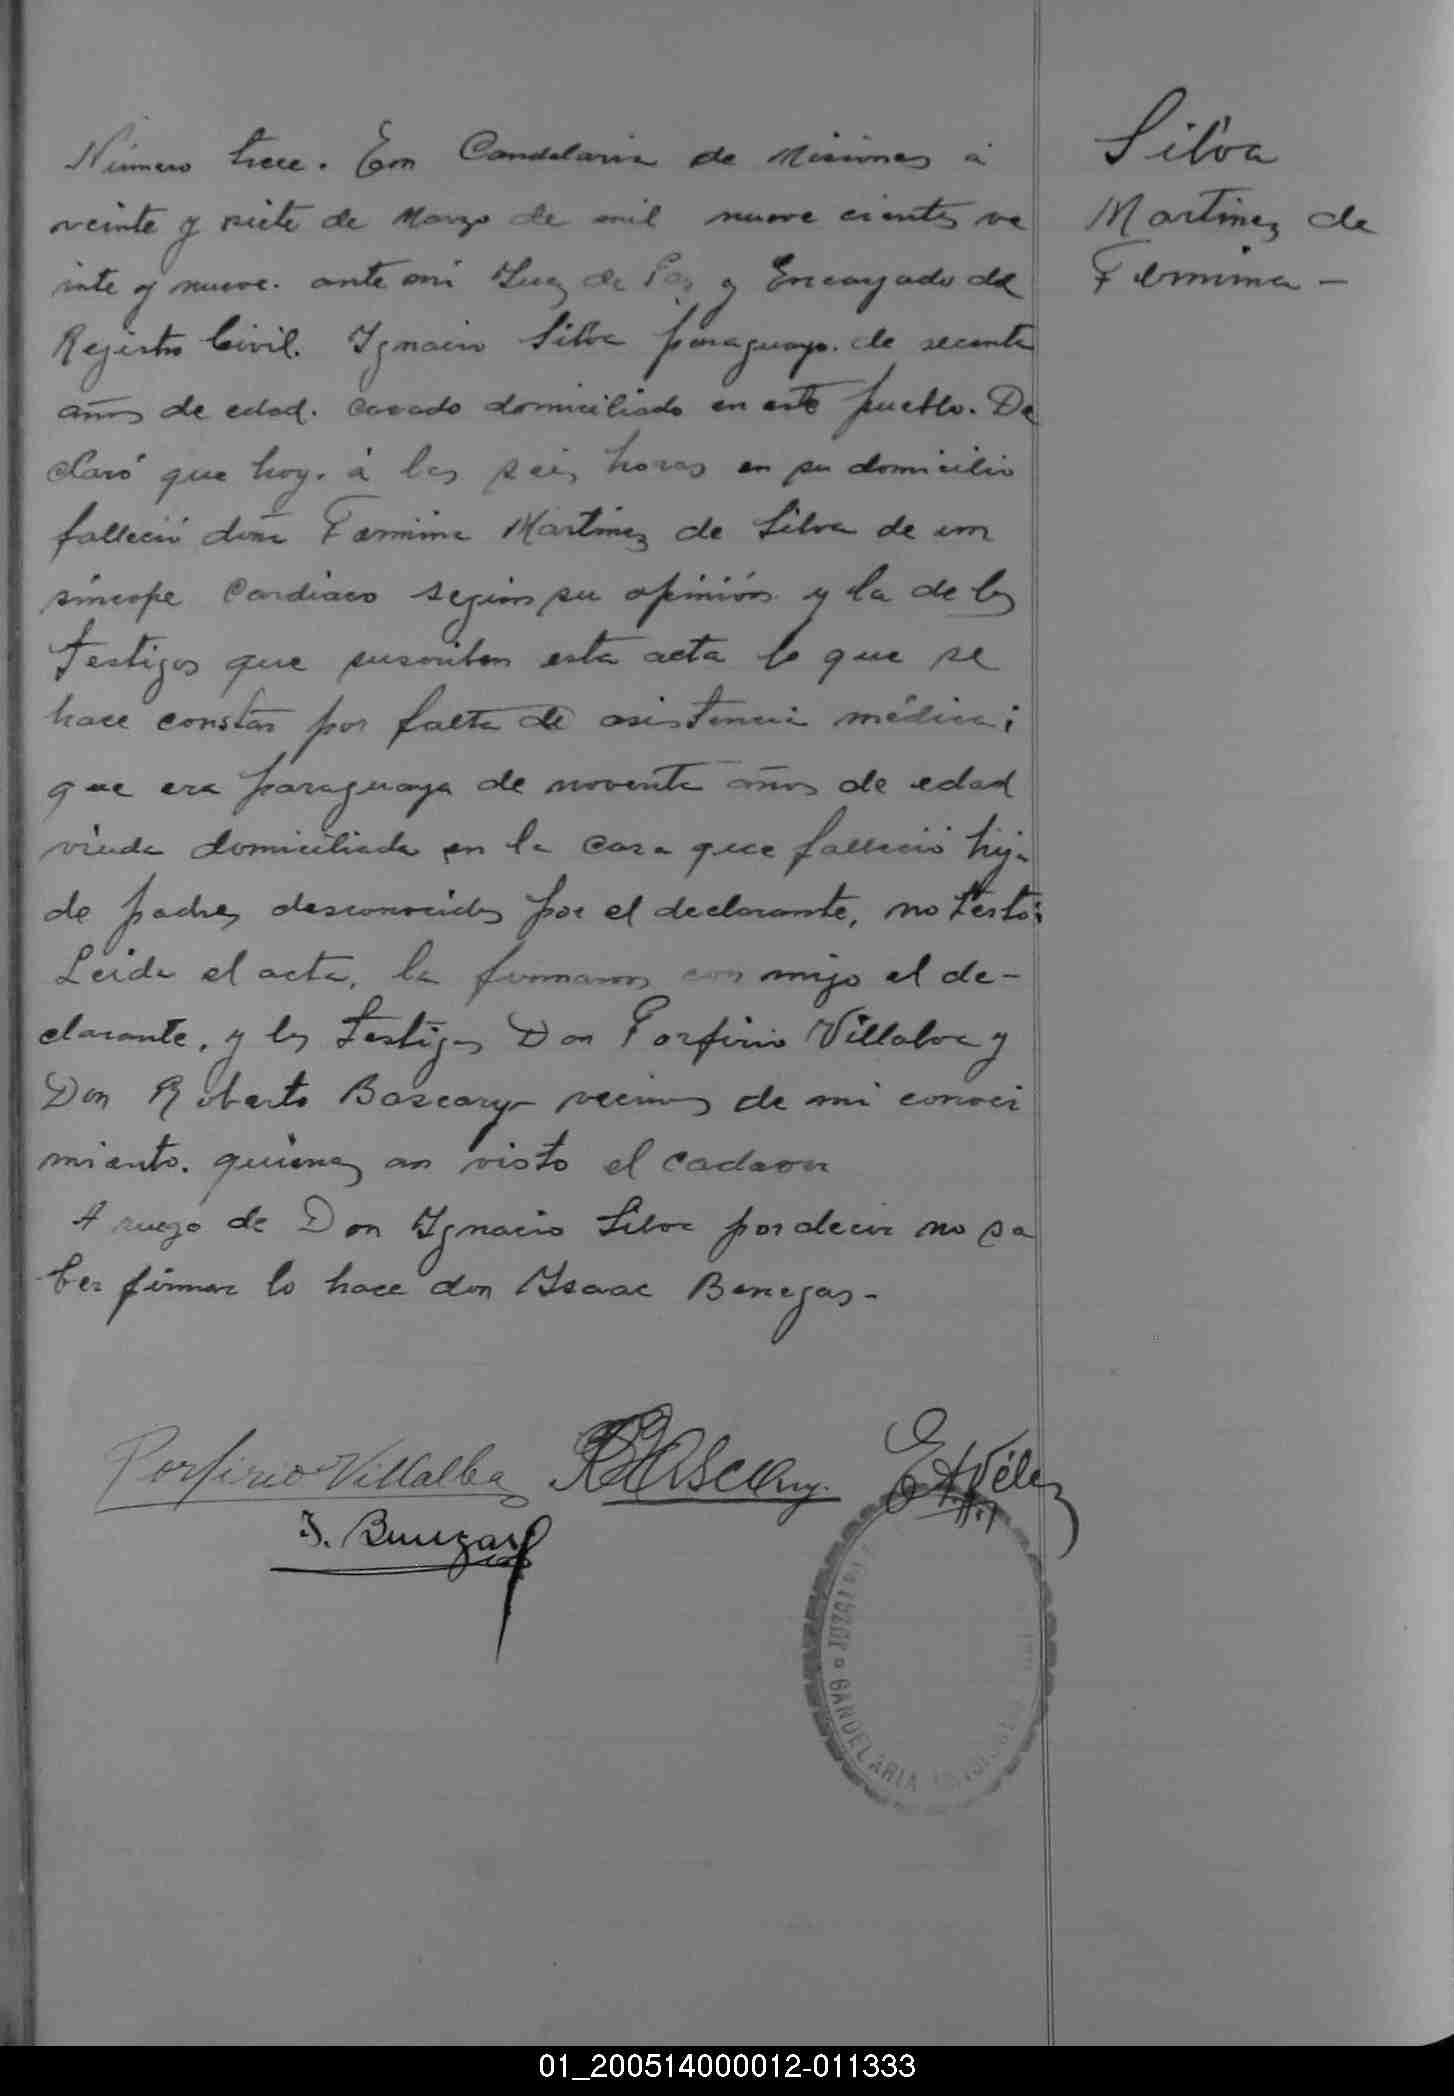 Número trece. En Candelaria de Misiones á
veinte y siete de Marzo de mil nueve cientos ve
inte y nueve. ante mi Juez de Paz y Encargado del
Registro Civil. Ignacio Silva paraguayo. de secenta
años de edad. casado domiciliado en este pueblo. De
claró que hoy. á las seis horas en su domicilio
falleció doña Fermina Martinez de Silva de un
síncope Cardiaco segun su opinión y la de los
testigos que suscriben esta acta lo que se
hace constar por falta de asistencia médica;
que era paraguaya de noventa años de edad
viuda domiciliada en la casa que falleció hija
de padres desconocidos por el declarante, no testó;
Leida el acta, la firmaron con migo el de-
clarante, y los testigos Don Porfirio Villalva y
Don Roberto Bascary vecinos de mi conoci
miento. quienes an visto el cadaver
A ruego de Don Ignacio Silva por decir no sa
ber firmar lo hace don Isaac Benegas-
Silva
Martinez de
Fermina -
Porfirio Villalba
RBascary.
E A Vélez
I. Benegas
JUZGADO DE CANDELARIA MISIONES
01_200514000012-011333